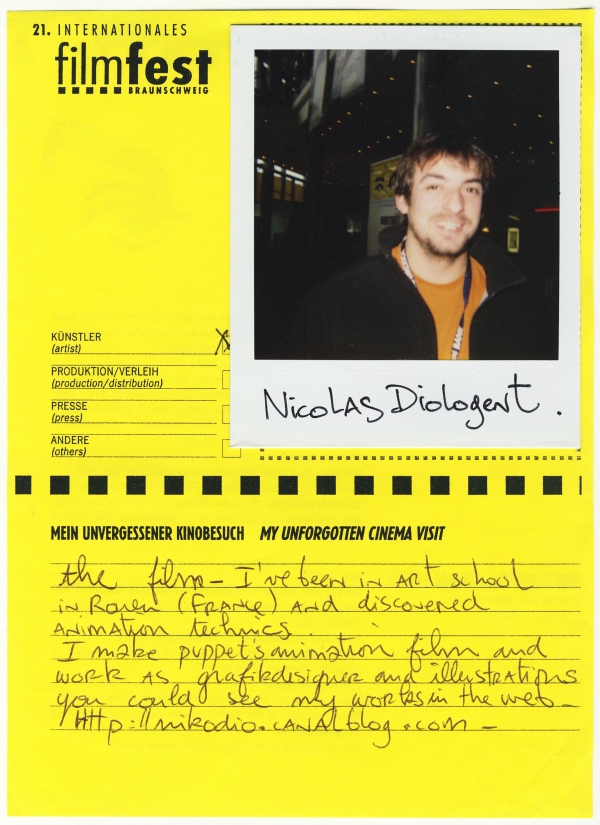 21. INTERNATIONALES
filmfest
BRAUNSCHWEIG
KÜNSTLER
(artist)
PRODUKTION/VERLEIH
(production/distribution)
PRESSE
(press)
ANDERE
(others)
Nicolas Diologent.
MEIN UNVERGESSENER KINOBESUCH MY UNFORGOTTEN CINEMA VISIT
the film - I've been in art school
in Rouen (France) and discovered
animation technics.
I make puppet's animation film and
work as grafikdesigner and illustrations
you could see my works in the web -
Http://nikodio.canalblog.com -